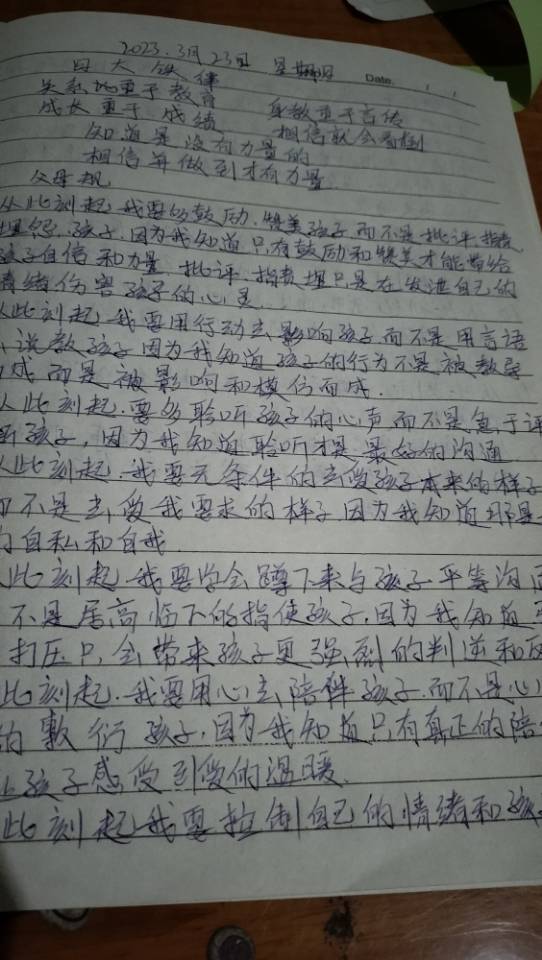 2023.3月23日 星期四
Date:
四大铁律
关系地重于教育 身教重于言传
成长重于成绩 相信就会看到
知道是没有力量的
相信并做到才有力量
父母规
从此刻起我要多鼓励.赞美孩子而不是批评.指责
埋怨.孩子.因为我知道只有鼓励和赞美才能带给
孩子自信和力量.批评.指责埋只是在发泄自己的
情绪伤害孩子的心灵
从此刻起.我要用行动去影响孩子而不是用言语
说教孩子因为我知道孩子的行为不是被教导
成而是被影响和模仿而成.
从此刻起.要多聆听孩子的心声而不是急于评
孩子,因为我知道聆听才是最好的沟通
从此刻起.我要无条件的去爱孩子本来的样子
而不是去爱我要求的样子因为我知道那是
的自私和自我
此刻起我要学会蹲下来与孩子平等沟
不是居高临下的指使孩子.因为我知道
打压只会带来孩子更强烈的判逆和
此刻起.我要用心去陪伴孩子.而不是心
的敷衍孩子.因为我知道只有真正的陪
让孩子感受到爱的温暖.
此刻起我要控制自己的情绪和孩